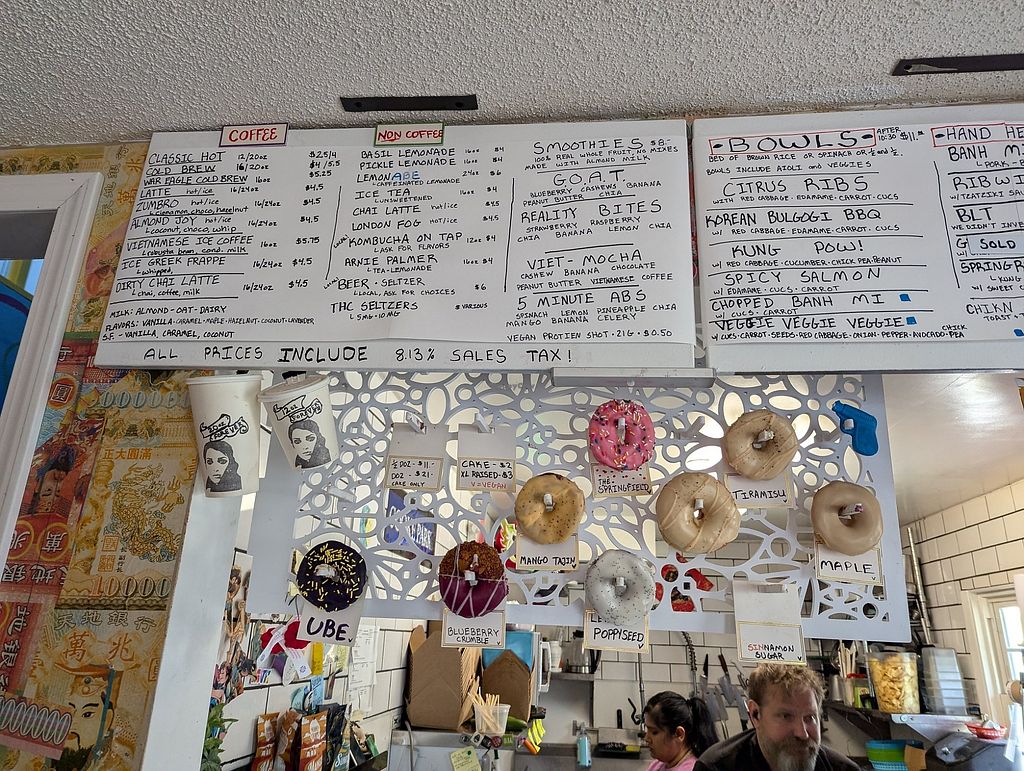 COFFEE
CLASSIC HOT 12/20oz $2.5/4
COLD BREW 16/20oz $4/5.5
WAR EAGLE COLD BREW 16oz $5.25
LATTE hot/ice 16/24oz $4.5
ZUMBRO hot/ice 16/24oz $4.5
Cinnamon, choco, hazelnut
ALMOND JOY hot/ice 16/24oz $4.5
Coconut, choco, whip
VIETNAMESE ICE COFFEE 16oz $5.75
robusta bean, cond. milk
ICE GREEK FRAPPE 16/24oz $4.5
whipped,
DIRTY CHAI LATTE 16/24oz $4.5
chai, coffee, milk
MILK: ALMOND - OAT - DAIRY
FLAVORS: VANILLA - CARAMEL - MAPLE - HAZELNUT - COCONUT - LAVENDER
S.F - VANILLA, CARAMEL, COCONUT
NON COFFEE
BASIL LEMONADE 16oz $4
PICKLE LEMONADE 16oz $4
LEMONABE 24oz $6
CAFFEINATED LEMONADE
ICE TEA $4.5
UNSWEETENED
CHAI LATTE hot/ice $4.5
LONDON FOG hot/ice $4.5
KOMBUCHA ON TAP 12oz $4
ASK FOR FLAVORS
ARNIE PALMER $4
TEA-LEMONADE
BEER - SELTZER $6
LOCAL, ASK FOR CHOICES
THC SELTZERS $ VARIOUS
5MG - 10MG
SMOOTHIES $8-
100% REAL WHOLE FRUIT, NO MIXES
MADE WITH ALMOND MILK
G.O.A.T.
BLUEBERRY CASHEWS BANANA
PEANUT BUTTER CHIA
REALITY BITES
STRAWBERRY RASPBERRY
CHIA BANANA LEMON CHIA
VIET-MOCHA
CASHEW BANANA CHOCOLATE
PEANUT BUTTER VIETNAMESE COFFEE
5 MINUTE ABS
SPINACH LEMON PINEAPPLE CHIA
MANGO BANANA CELERY
VEGAN PROTIEN SHOT - 21G - $0.50
ALL PRICES INCLUDE 8.13% SALES TAX!
- BOWLS - AFTER 10:30
BED OF BROWN RICE OR SPINACH OR ½ and ½
BOWLS INCLUDE AIOLI and VEGGIES
CITRUS RIBS
WITH RED CABBAGE - EDAMAME - CARROT - CUCS
KOREAN BULGOGI BBQ
W/ RED CABBAGE - EDAMAME - CARROT - CUCS
KUNG POW!
W/ RED CABBAGE - CUCUMBER - CHICK PEA - PEANUT
SPICY SALMON
W/ EDAMAME - CUCS - CARROT
CHOPPED BANH MI
W/ CUCS - CARROT
VEGGIE VEGGIE VEGGIE
W/ CUCS - CARROT - SEEDS - RED CABBAGE - ONION - PEPPER - AVOCADO - CHICK PEA
- HAND HE
BANH M
- PORK - P
RIB WI
W/ TZATZIKI SA
BLT
WE DIDN'T INVE
G SOLD
SPRING R
W/ SWEET C
CHIKN
TOAST, T
20oz FOREVER
12oz FOREVER
½ DOZ - $11-
DOZ - $21-
CAKE ONLY
CAKE - $2
XL RAISED - $3
V = VEGAN
THE SPRINGFIELD
TIRAMISU
MANGO TAJIN
MAPLE
UBE
BLUEBERRY
CRUMBLE
POPPISEED
SINNAMON
SUGAR
正大圓滿
10000
萬兆
天地銀行